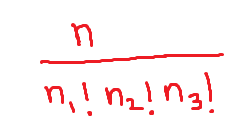 n
n₁! n₂! n₃!